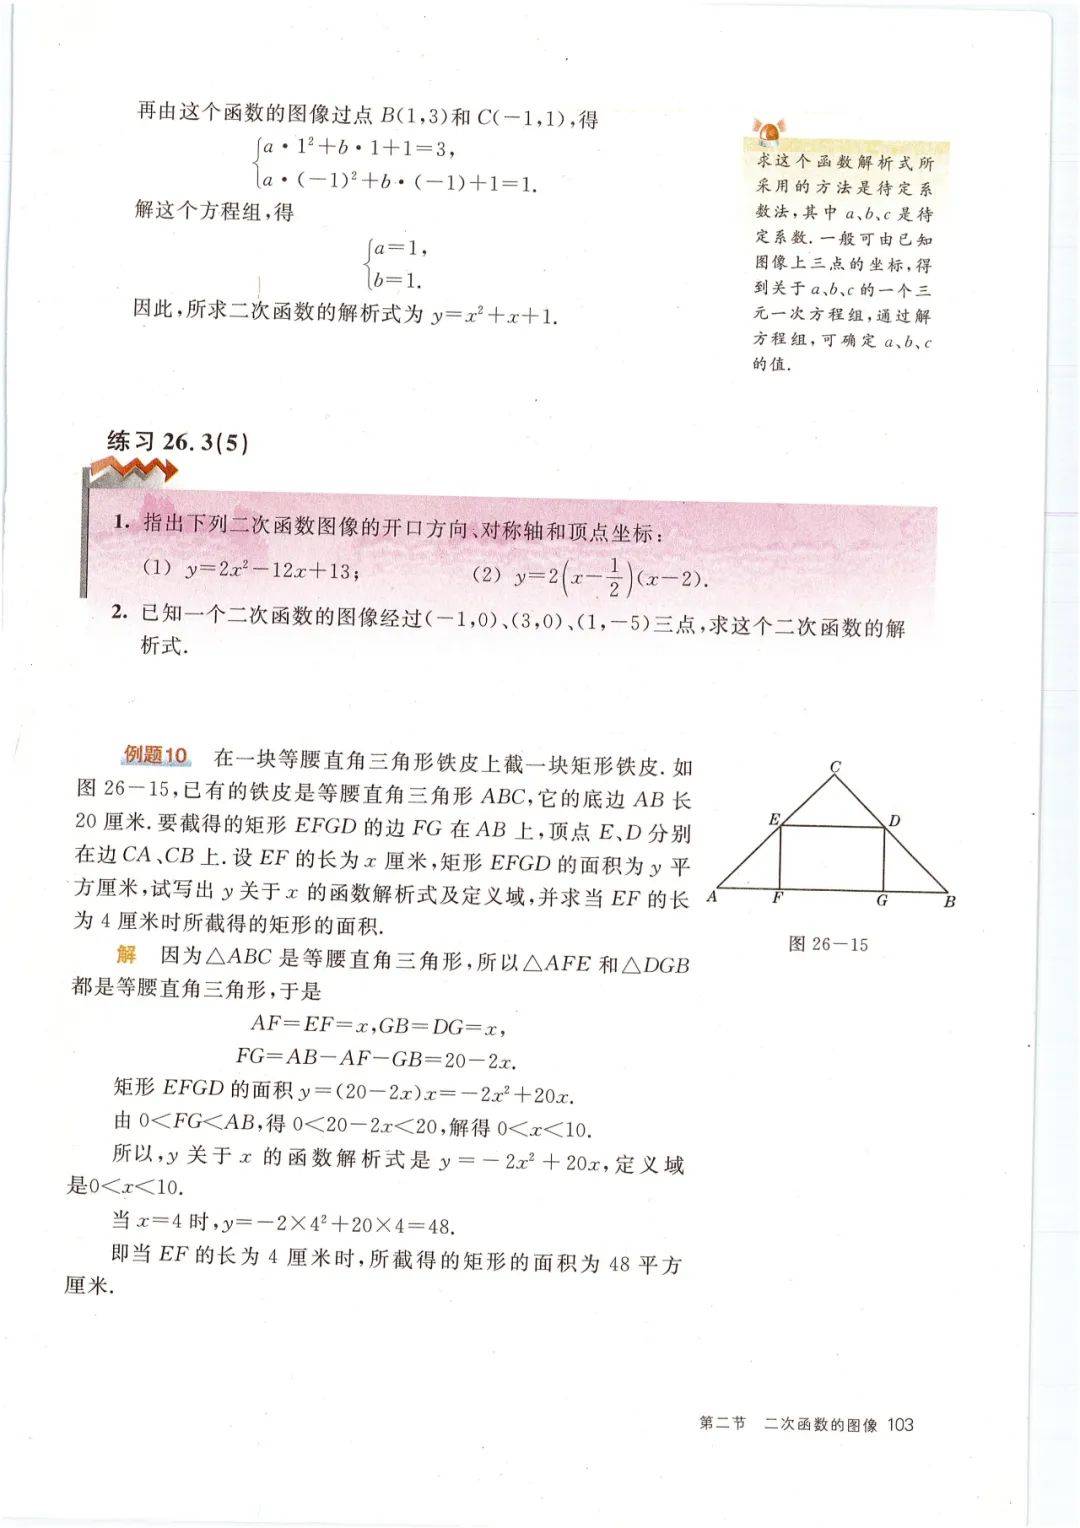 再由这个函数的图像过点 B(1,3)和 C(-1,1),得
{a·1²+b·1+1=3,
a·(-1)²+b·(-1)+1=1.
解这个方程组,得
{a=1,
b=1.
因此,所求二次函数的解析式为 y=x²+x+1.
求这个函数解析式所
采用的方法是待定系
数法,其中 a、b、c 是待
定系数.一般可由已知
图像上三点的坐标,得
到关于 a、b、c 的一个三
元一次方程组,通过解
方程组,可确定 a、b、c
的值.
练习 26.3(5)
1. 指出下列二次函数图像的开口方向、对称轴和顶点坐标:
(1) y=2x²-12x+13; (2) y=2(x-1/2)(x-2).
2. 已知一个二次函数的图像经过(-1,0)、(3,0)、(1,-5)三点,求这个二次函数的解
析式.
例题10 在一块等腰直角三角形铁皮上截一块矩形铁皮.如
图 26-15,已有的铁皮是等腰直角三角形 ABC,它的底边 AB 长
20 厘米.要截得的矩形 EFGD 的边 FG 在 AB 上,顶点 E、D 分别
在边 CA、CB 上.设 EF 的长为 x 厘米,矩形 EFGD 的面积为 y 平
方厘米,试写出 y 关于 x 的函数解析式及定义域,并求当 EF 的长
为 4 厘米时所截得的矩形的面积.
C
E D
A F G B
图 26-15
解 因为△ABC 是等腰直角三角形,所以△AFE 和△DGB
都是等腰直角三角形,于是
AF=EF=x,GB=DG=x,
FG=AB-AF-GB=20-2x.
矩形 EFGD 的面积 y=(20-2x)x=-2x²+20x.
由 0<FG<AB,得 0<20-2x<20,解得 0<x<10.
所以,y 关于 x 的函数解析式是 y=-2x²+20x,定义域
是0<x<10.
当 x=4 时,y=-2×4²+20×4=48.
即当 EF 的长为 4 厘米时,所截得的矩形的面积为 48 平方
厘米.
第二节 二次函数的图像 103